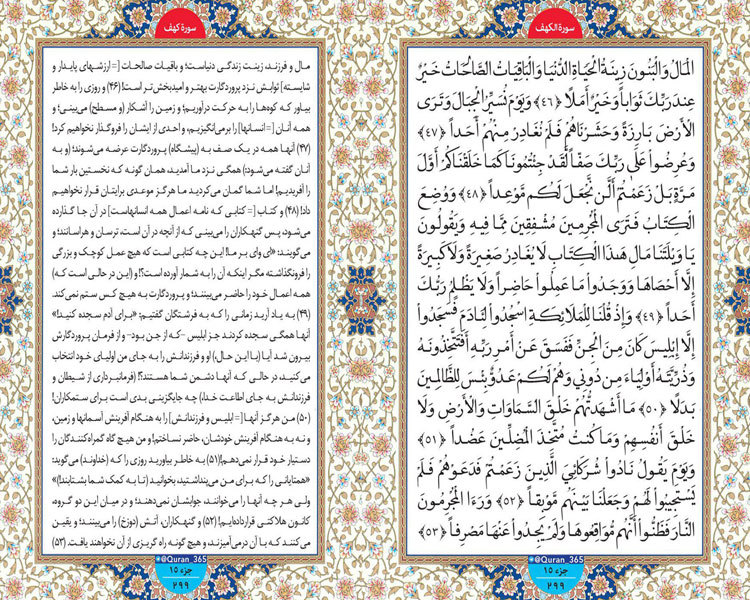 سورة الكهف
الْمَالُ وَالْبَنُونَ زِينَةُ الْحَيَاةِ الدُّنْيَا وَالْبَاقِيَاتُ الصَّالِحَاتُ خَيْرٌ
عِندَ رَبِّكَ ثَوَاباً وَخَيْرٌ أَمَلًا ﴿٤٦﴾ وَيَوْمَ نُسَيِّرُ الْجِبَالَ وَتَرَى
الْأَرْضَ بَارِزَةً وَحَشَرْنَاهُمْ فَلَمْ نُغَادِرْ مِنْهُمْ أَحَداً ﴿٤٧﴾
وَعُرِضُوا عَلَى رَبِّكَ صَفّاً لَّقَدْ جِئْتُمُونَا كَمَا خَلَقْنَاكُمْ أَوَّلَ
مَرَّةٍ بَلْ زَعَمْتُمْ أَلَّن نَّجْعَلَ لَكُم مَّوْعِداً ﴿٤٨﴾ وَوُضِعَ
الْكِتَابُ فَتَرَى الْمُجْرِمِينَ مُشْفِقِينَ مِمَّا فِيهِ وَيَقُولُونَ
يَا وَيْلَتَنَا مَالِ هَذَا الْكِتَابِ لَا يُغَادِرُ صَغِيرَةً وَلَا كَبِيرَةً
إِلَّا أَحْصَاهَا وَوَجَدُوا مَا عَمِلُوا حَاضِراً وَلَا يَظْلِمُ رَبُّكَ
أَحَداً ﴿٤٩﴾ وَإِذْ قُلْنَا لِلْمَلَائِكَةِ اسْجُدُوا لِآدَمَ فَسَجَدُوا
إِلَّا إِبْلِيسَ كَانَ مِنَ الْجِنِّ فَفَسَقَ عَنْ أَمْرِ رَبِّهِ أَفَتَتَّخِذُونَهُ
وَذُرِّيَّتَهُ أَوْلِيَاءَ مِن دُونِي وَهُمْ لَكُمْ عَدُوٌّ بِئْسَ لِلظَّالِمِينَ
بَدَلًا ﴿٥٠﴾ مَا أَشْهَدتُّهُمْ خَلْقَ السَّمَاوَاتِ وَالْأَرْضِ وَلَا
خَلْقَ أَنفُسِهِمْ وَمَا كُنتُ مُتَّخِذَ الْمُضِلِّينَ عَضُداً ﴿٥١﴾
وَيَوْمَ يَقُولُ نَادُوا شُرَكَائِيَ الَّذِينَ زَعَمْتُمْ فَدَعَوْهُمْ فَلَمْ
يَسْتَجِيبُوا لَهُمْ وَجَعَلْنَا بَيْنَهُم مَّوْبِقاً ﴿٥٢﴾ وَرَءَا الْمُجْرِمُونَ
النَّارَ فَظَنُّوا أَنَّهُم مُّوَاقِعُوهَا وَلَمْ يَجِدُوا عَنْهَا مَصْرِفاً ﴿٥٣﴾
@Quran_365
جزء ۱۵
۲۹۹
سورة كهف
مال و فرزند، زینت زندگی دنیاست؛ و باقیات صالحات [= ارزشهای پایدار و
شایسته] ثوابش نزد پروردگارت بهتر و امیدبخش‌تر است! (۴۶) و روزی را به خاطر
بیاور که کوه‌ها را به حرکت درآوریم؛ و زمین را آشکار (و مسطح) می‌بینی؛ و
همه آنان [= انسانها] را برمی‌انگیزیم، و احدی از ایشان را فروگذار نخواهیم کرد!
(۴۷) آنها همه در یک صف به (پیشگاه) پروردگارت عرضه می‌شوند؛ (و به
آنان گفته می‌شود:) همگی نزد ما آمدید، همان گونه که نخستین بار شما
را آفریدیم! اما شما گمان می‌کردید ما هرگز موعدی برایتان قرار نخواهیم
داد! (۴۸) و کتاب [= کتابی که نامه اعمال همه انسانهاست] در آن جا گذارده
می‌شود، پس گنهکاران را می‌بینی که از آنچه در آن است، ترسان و هراسانند؛ و
می‌گویند: «ای وای بر ما! این چه کتابی است که هیچ عمل کوچک و بزرگی
را فرونگذاشته مگر اینکه آن را به شمار آورده است؟! و (این در حالی است که)
همه اعمال خود را حاضر می‌بینند؛ و پروردگارت به هیچ کس ستم نمی‌کند.
(۴۹) به یاد آرید زمانی را که به فرشتگان گفتیم: «برای آدم سجده کنید!»
آنها همگی سجده کردند جز ابلیس -که از جن بود- و از فرمان پروردگارش
بیرون شد آیا (با این حال،) او و فرزندانش را به جای من اولیای خود انتخاب
می‌کنید، در حالی که آنها دشمن شما هستند؟! (فرمانبرداری از شیطان و
فرزندانش به جای اطاعت خدا،) چه جایگزینی بدی است برای ستمکاران!
(۵۰) من هرگز آنها [= ابلیس و فرزندانش] را به هنگام آفرینش آسمانها و زمین،
و نه به هنگام آفرینش خودشان، حاضر نساختم! و من هیچ گاه گمراه‌کنندگان را
دستیار خود قرار نمی‌دهم! (۵۱) به خاطر بیاورید روزی را که (خداوند) می‌گوید:
«همتایانی را که برای من می‌پنداشتید، بخوانید (تا به کمک شما بشتابند!)»
ولی هر چه آنها را می‌خوانند، جوابشان نمی‌دهند؛ و در میان این دو گروه،
کانون هلاکتی قرارداده‌ایم! (۵۲) و گنهکاران، آتش (دوزخ) را می‌بینند؛ و یقین
می‌کنند که با آن درمی‌آمیزند، و هیچ گونه راه گریزی از آن نخواهند یافت. (۵۳)
@Quran_365
جزء ۱۵
۲۹۹